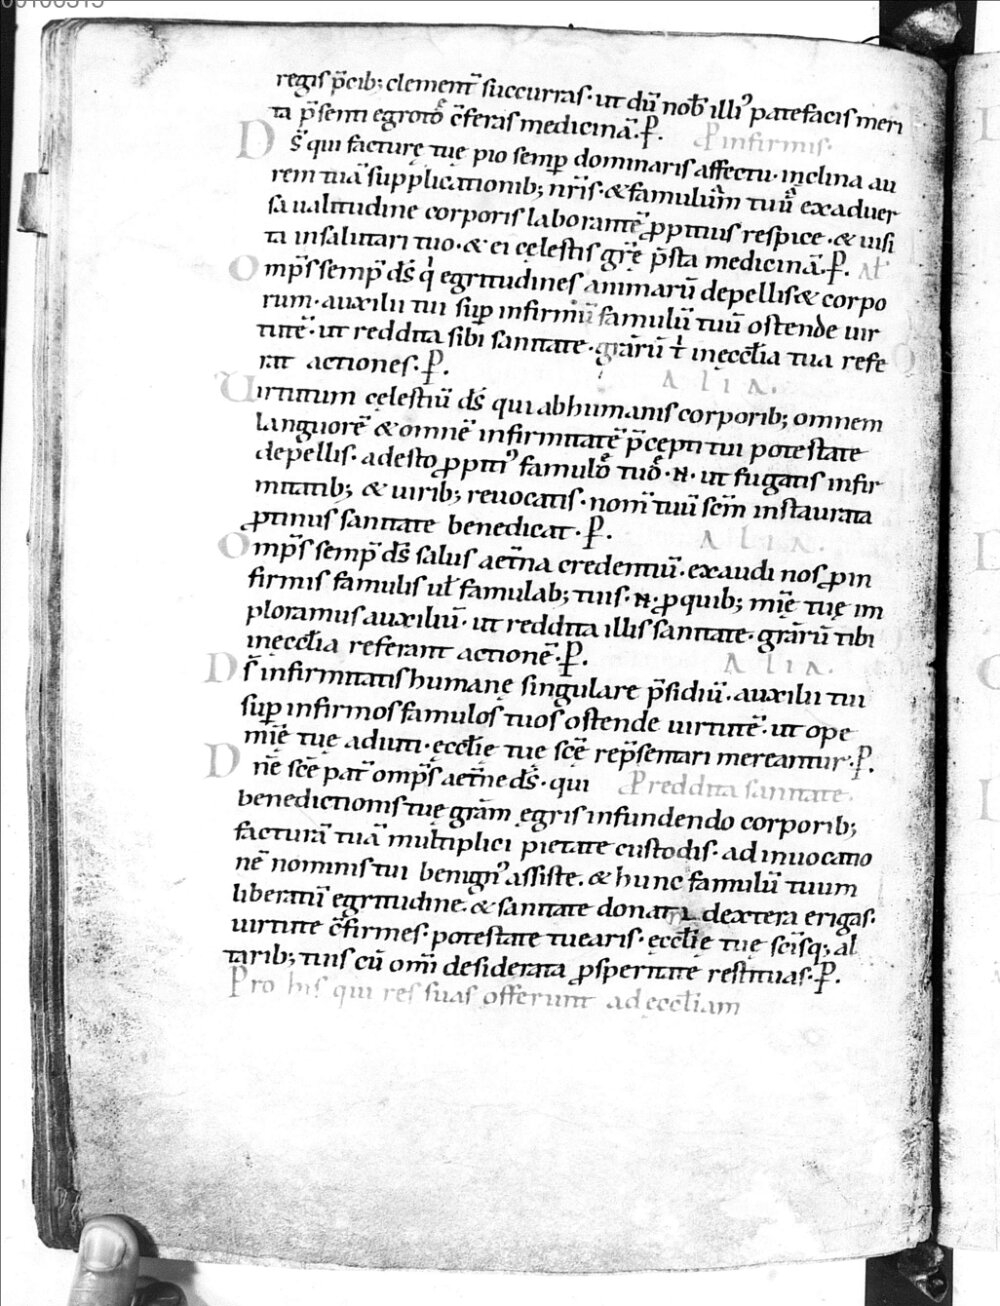 00100315
regis p̄cib; clement̄ succurras· ut dū nob̄ illi᾿ patefacis meri
ta p̄senti egrotō c̄feras medicinā. P̱.
P̱ infirmis.
D s̄ qui facturę tuę pio semp̱ dominaris affectu· inclina au
rem tuā supplicationib; nr̄is· & famulūm tuū ex aduer
sa ualitudine corporis laborantē ꝓpitius respice· & uisi
ta in salutari tuo· & ei cęlestis gr̄ę p̄sta medicinā. P̱. Al̄
O mp̄s semp̱ d̄s q¹ egritudines animarū depellis & corpo
rum· auxilii tui sup̱ infirmū famulū tuū ostende uir
tutē· ut reddita sibi sanitate· gr̄arū t¹ in ęccl̄ia tua refe
rat actiones. P̱.
ALIA.
U irtutum cęlestiū d̄s qui ab humanis corporib; omnem
languorē & omnē infirmitatē p̄cepti tui potestate
depellis· adesto ꝓpiti᾿ famulō tuō· N· ut fugatis infir
mitatib; & uirib; reuocatis· nom̄ tuū sc̄m instaurata
ꝓtinus sanitate benedicat. P̱.
ALIA.
O mp̄s semp̱ d̄s salus aet̄na credentiū· exaudi nos ꝓ in
firmis famulis ul̄ famulab; tuis· N· ꝓ quib; mīę tuę im
ploramus auxiliū· ut reddita illis sanitate· gr̄arū tibi
in ęccl̄ia referant actionē. P̱.
ALIA.
D s̄ infirmitatis humanę singulare p̄sidiū· auxilii tui
sup̱ infirmos famulos tuos ostende uirtutē· ut ope
mīę tuę adiuti· ęccl̄ię tuę sc̄ę rep̄sentari mereantur. P̱.
D nē sc̄ē pat̄ omp̄s aet̄ne d̄s· qui
P̱ reddita sanitate.
benedictionis tuę gr̄am ęgris infundendo corporib;
facturā tuā multiplici pietate custodis· ad inuocatio
nē nominis tui benign᾿ assiste· & hunc famulū tuum
liberatū egritudine· & sanitate donatū dextera erigas·
uirtute c̄firmes· potestate tuearis· ęccl̄ię tuę sc̄isq; al
tarib; tuis cū om̄i desiderata ꝓsperitate restituas. P̱.
Pro his qui res suas offerunt ad ęccl̄iam